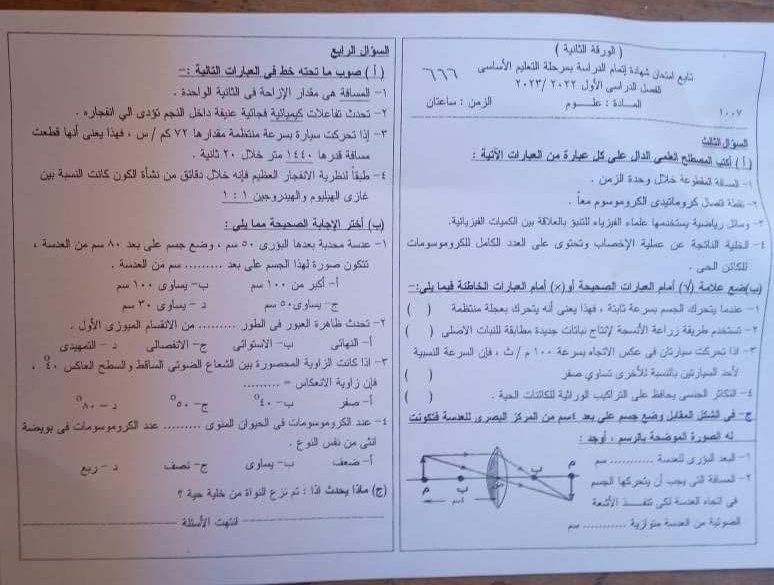 ( الورقة الثانية )
تابع امتحان شهادة إتمام الدراسة بمرحلة التعليم الأساسى
٦٦٦
الفصل الدراسى الأول ٢٠٢٢ /٢٠٢٣
المــادة : علــــوم
الزمن : ساعتان
١٠٠٧
السؤال الثالث
( أ ) أكتب المصطلح العلمى الدال على كل عبارة من العبارات الآتية :
١- المسافة المقطوعة خلال وحدة الزمن .
٢- نقطة اتصال كروماتيدى الكروموسوم معاً .
٣- وسائل رياضية يستخدمها علماء الفيزياء للتنبؤ بالعلاقة بين الكميات الفيزيائية.
٤- الخلية الناتجة عن عملية الإخصاب وتحتوى على العدد الكامل للكروموسومات
للكائن الحى .
(ب)ضع علامة (√) أمام العبارات الصحيحة أو(×) أمام العبارات الخاطئة فيما يلى:-
١- عندما يتحرك الجسم بسرعة ثابتة ، فهذا يعنى أنه يتحرك بعجلة منتظمة ( )
٢- تستخدم طريقة زراعة الأنسجة لإنتاج نباتات جديدة مطابقة للنبات الأصلى ( )
٣- اذا تحركت سيارتان فى عكس الاتجاه بسرعة ١٠٠ م / ث ، فإن السرعة النسبية
لأحد السيارتين بالنسبة للأخرى تساوي صفر ( )
٤- التكاثر الجنسى يحافظ على التراكيب الوراثية للكائنات الحية . ( )
ج- فى الشكل المقابل وضع جسم على بعد ٤سم من المركز البصرى للعدسة فتكونت
له الصورة الموضحة بالرسم ، أوجد :
١- البعد البؤرى للعدسة ............ سم
٢- المسافة التى يجب أن يتحركها الجسم
فى اتجاه العدسة لكى تنفـــذ الأشعة
الضوئية من العدسة متوازية ............ سم
م ب ب م
٤سم
السؤال الرابع
( أ ) صوب ما تحته خط فى العبارات التالية :-
١- المسافة هى مقدار الإزاحة فى الثانية الواحدة .
٢- تحدث تفاعلات كيميائية فجائية عنيفة داخل النجم تؤدى الي انفجاره .
٣- إذا تحركت سيارة بسرعة منتظمة مقدارها ٧٢ كم / س ، فهذا يعنى أنها قطعت
مسافة قدرها ١٤٤٠ متر خلال ٢٠ ثانية .
٤- طبقاً لنظرية الانفجار العظيم فإنه خلال دقائق من نشأة الكون كانت النسبة بين
غازى الهيليوم والهيدروجين ١ : ١
(ب) أختر الإجابة الصحيحة مما يلى :
١- عدسة محدبة بعدها البؤرى ٥٠ سم ، وضع جسم على بعد ٨٠ سم من العدسة ،
تتكون صورة لهذا الجسم على بعد ......... سم من العدسة .
أ- أكبر من ١٠٠ سم ب- يساوى ١٠٠ سم
ج- يساوى٥٠ سم د - يساوى ٣٠ سم
٢- تحدث ظاهرة العبور فى الطور ......... من الانقسام الميوزى الأول .
أ- النهائى ب- الاستوائى ج- الانفصالى د - التمهيدى
٣- اذا كانت الزاوية المحصورة بين الشعاع الضوئى الساقط والسطح العاكس ٤٠° ،
فإن زاوية الانعكاس = .........
أ- صفر ب- ٤٠° ج- ٥٠° د- ٨٠°
٤- عدد الكروموسومات فى الحيوان المنوى ......... عدد الكروموسومات فى بويضة
أنثى من نفس النوع .
أ- ضعف ب- يساوى ج- نصف د - ربع
(ج) ماذا يحدث اذا : تم نزع النواة من خلية حية ؟
انتهت الأسئلة